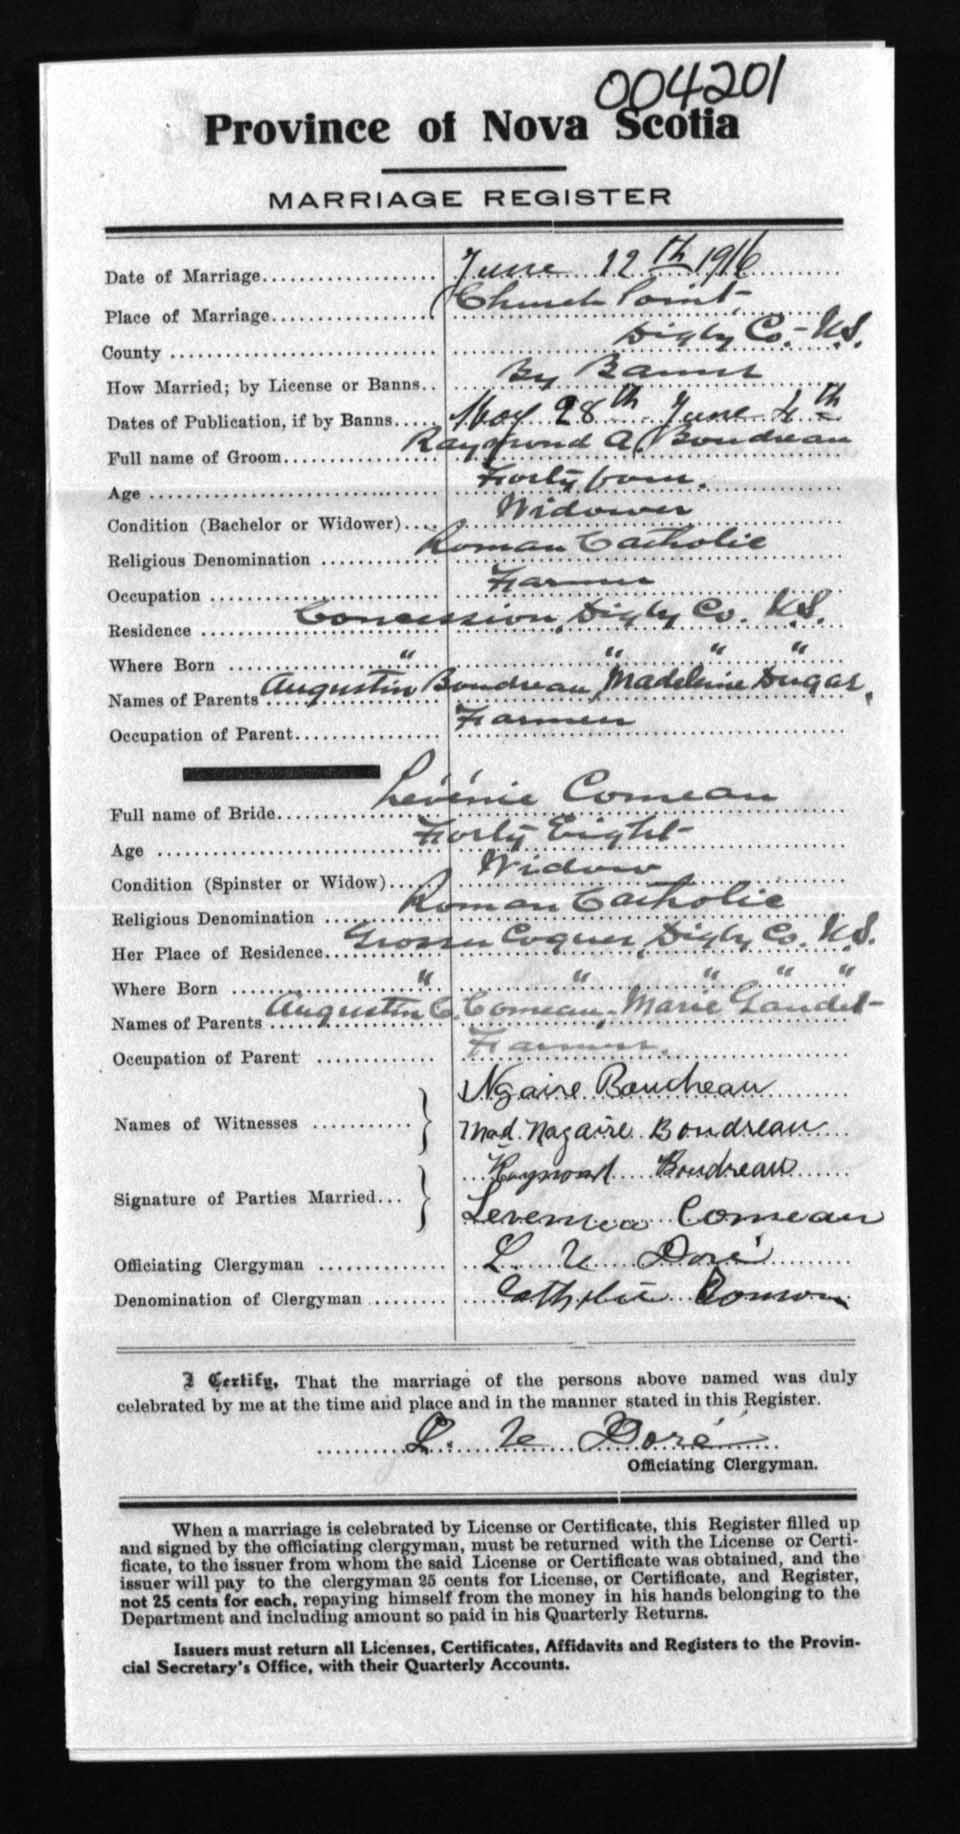 004201
Province of Nova Scotia
MARRIAGE REGISTER
Date of Marriage.................... June 12th 1916
Place of Marriage.................... Church Point
County .................... Digby Co. - N.S.
How Married; by License or Banns.. By Banns
Dates of Publication, if by Banns..... May 28th June 4th
Full name of Groom.................... Raymond A. Boudreau
Age .................... Forty four.
Condition (Bachelor or Widower).... Widower
Religious Denomination .................... Roman Catholic
Occupation .................... Farmer
Residence .................... Concession, Digby Co. N.S.
Where Born .................... " " " "
Names of Parents .................... Augustin Boudreau, Madeleine Dugas,
Occupation of Parent.................... Farmer
Full name of Bride.................... Lévénie Comeau
Age .................... Forty Eight
Condition (Spinster or Widow).... Widow
Religious Denomination .................... Roman Catholic
Her Place of Residence.................... Grosses Coques, Digby Co. N.S.
Where Born .................... " " " " "
Names of Parents .................... Augustin C. Comeau, Marie Gaudet
Occupation of Parent .................... Farmer.
Names of Witnesses ........... } Ngaire Boudreau
Mad. Nazaire Boudreau
Signature of Parties Married... } Raymond Boudreau
Levenica Comeau
Officiating Clergyman .................... L. Doré
Denomination of Clergyman ......... Catholic Roman
I Certify, That the marriage of the persons above named was duly
celebrated by me at the time and place and in the manner stated in this Register.
L. Doré
Officiating Clergyman.
When a marriage is celebrated by License or Certificate, this Register filled up
and signed by the officiating clergyman, must be returned with the License or Certi-
ficate, to the issuer from whom the said License or Certificate was obtained, and the
issuer will pay to the clergyman 25 cents for License, or Certificate, and Register,
not 25 cents for each, repaying himself from the money in his hands belonging to the
Department and including amount so paid in his Quarterly Returns.
Issuers must return all Licenses, Certificates, Affidavits and Registers to the Provin-
cial Secretary's Office, with their Quarterly Accounts.